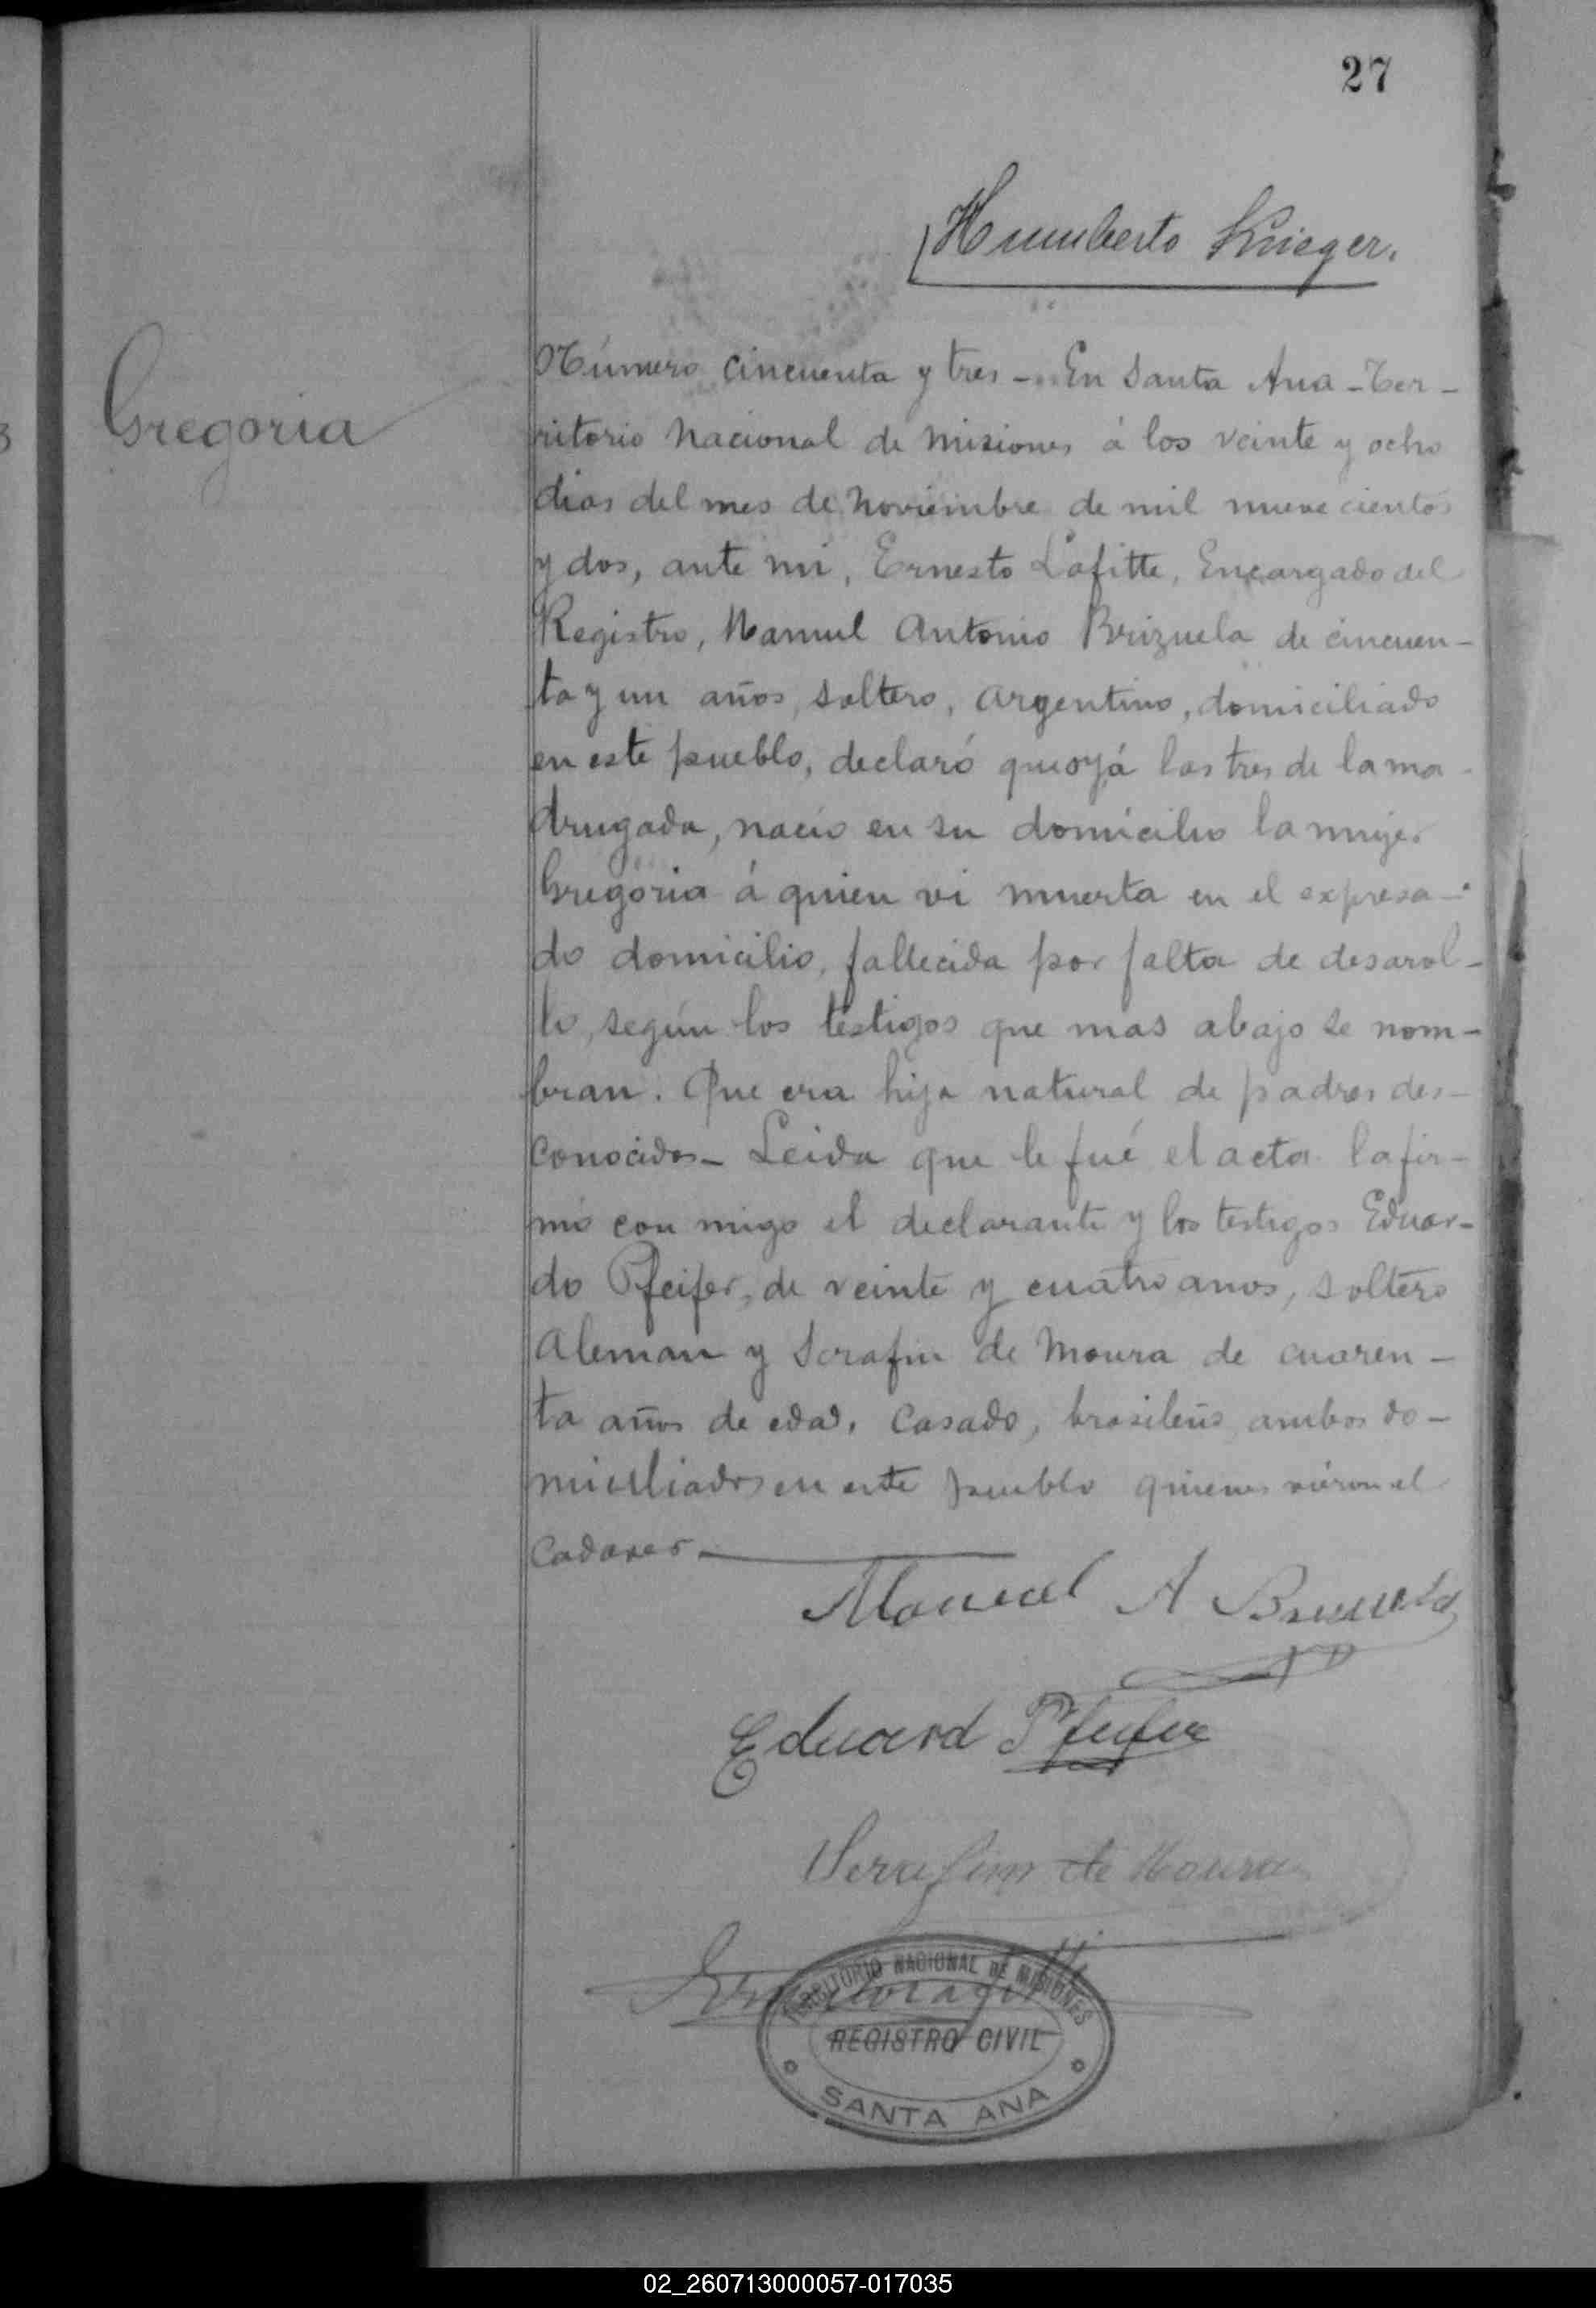 27
Humberto Krieger.
Número cincuenta y tres - En Santa Ana - Ter-
Gregoria
ritorio Nacional de Misiones á los veinte y ocho
dias del mes de Noviembre de mil nuevecientos
y dos, ante mi, Ernesto Lafitte, Encargado del
Registro, Manuel Antonio Brizuela de cincuen-
ta y un años, soltero, Argentino, domiciliado
en este pueblo, declaró que oy á las tres de la ma-
drugada, nacio en su domicilio la mujer
Gregoria á quien vi muerta en el expresa-
do domicilio, fallecida por falta de desarol-
lo, según los testigos que mas abajo se nom-
bran. Que era hija natural de padres des-
conocidos - Leida que le fué el acta la fir-
mó con migo el declarante y los testigos Eduar-
do Pfeifer, de veinte y cuatro anos, soltero
Aleman y Serafin de Moura de cuaren-
ta años de edad, casado, brasileño ambos do-
miciliados en este pueblo quienes vieron el
cadaver
Manuel A Brizuela
Eduard Pfeifer
Serafim de Moura
Ernesto Lafitte
TERRITORIO NACIONAL DE MISIONES
REGISTRO CIVIL
SANTA ANA
02_260713000057-017035